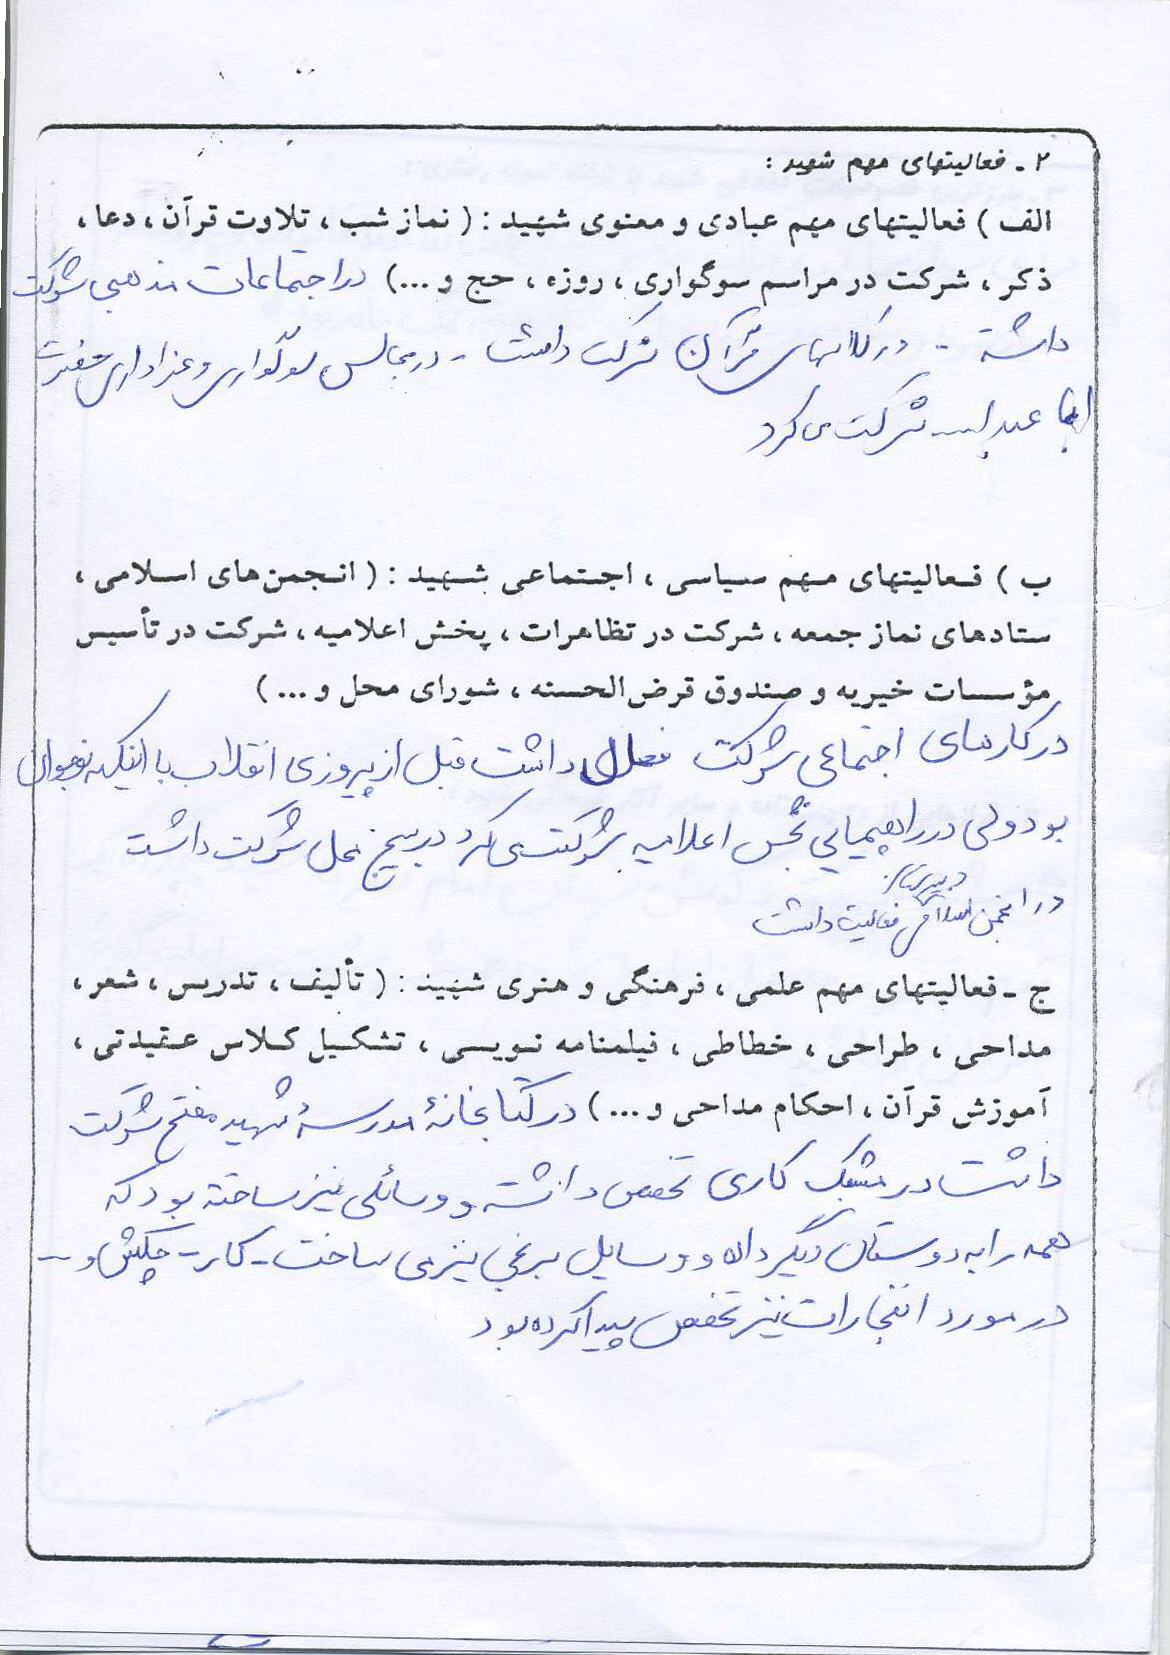 ۲ ـ فعالیتهای مهم شهید :
الف ) فعالیتهای مهم عبادی و معنوی شهید : ( نماز شب ، تلاوت قرآن ، دعا ،
ذکر ، شرکت در مراسم سوگواری ، روزه ، حج و ...) در اجتماعات مذهبی شرکت
داشته - در کلاسهای قرآن شرکت داشت - در مجالس سوگواری و عزاداری حضرت
ابا عبدالله شرکت می کرد
ب ) فعالیتهای مهم سیاسی ، اجتماعی شهید : ( انجمن‌های اسلامی ،
ستادهای نماز جمعه ، شرکت در تظاهرات ، پخش اعلامیه ، شرکت در تأسیس
مؤسسات خیریه و صندوق قرض‌الحسنه ، شورای محل و ... )
در کارهای اجتماعی شرکت فعال داشت قبل از پیروزی انقلاب با اینکه نوجوان
بود ولی در راهپیمایی پخش اعلامیه شرکت می کرد در بسیج محل شرکت داشت
دبیرستان
در انجمن اسلامی فعالیت داشت
ج ـ فعالیتهای مهم علمی ، فرهنگی و هنری شهید : ( تألیف ، تدریس ، شعر ،
مداحی ، طراحی ، خطاطی ، فیلمنامه نویسی ، تشکیل کلاس عقیدتی ،
آموزش قرآن ، احکام مداحی و ... ) در کتابخانهٔ مدرسهٔ شهید مفتح شرکت
داشت در مشبک کاری تخصص داشته و وسائلی نیز ساخته بود که
همه را به دوستان دیگر داده و وسایل برنجی نیز می ساخت - کار - چکش و -
در مورد انفجارات نیز تخصص پیدا کرده بود